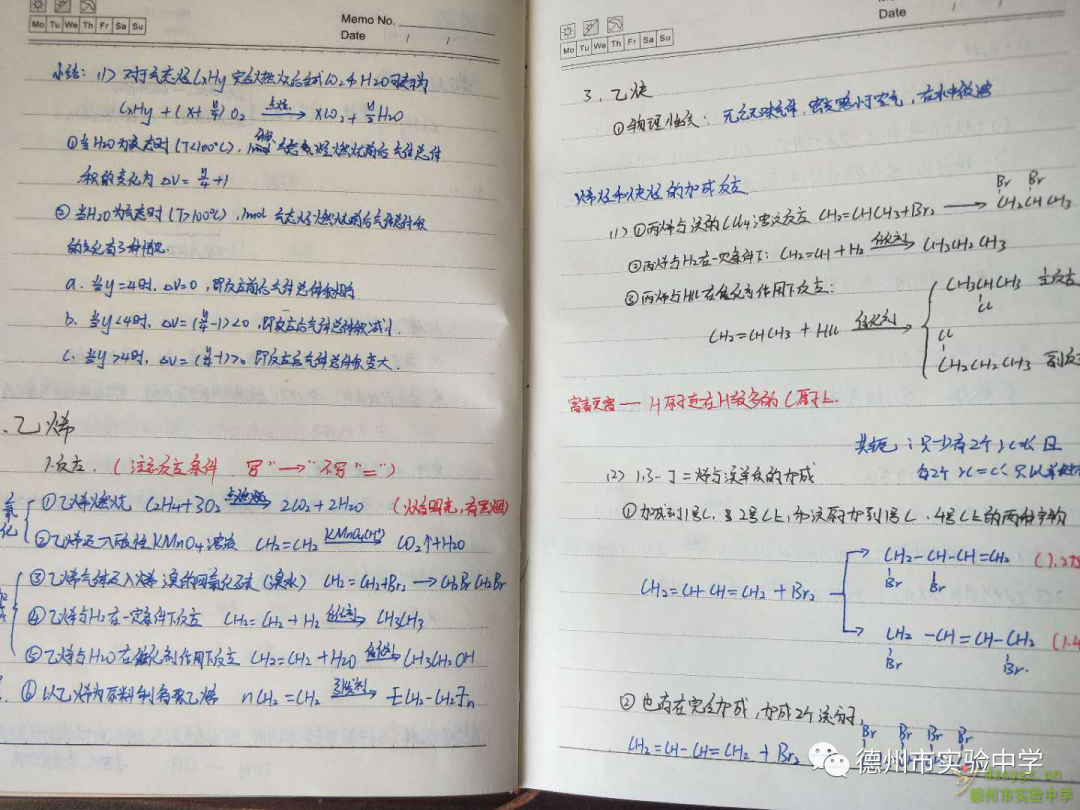 Mo Tu We Th Fr Sa Su
Memo No.
Date / /
小结：(1) 对于气态烃CxHy完全燃烧后生成CO2和H2O可表示为
CxHy + (x+ y/4) O2 —点燃→ xCO2 + y/2 H2O
①当H2O为液态时 (T<100℃)，1mol 气态烃燃烧前后气体总体
积的变化为 ΔV = y/4 +1
② 当H2O为气态时 (T>100℃)，1mol 气态烃燃烧前后气体总体积
的变化有3种情况
a. 当y=4时, ΔV=0，即反应前后气体总体积相等
b. 当y<4时, ΔV=(y/4 -1)<0，即反应后气体总体积减小.
c. 当y>4时, ΔV=(y/4 -1)>0 即反应后气体总体积变大.
.乙烯
1.反应. (注意反应条件 写"→"不写"=")
氧化
①乙烯燃烧 C2H4+3O2 —点燃→ 2CO2+2H2O (火焰明亮,有黑烟)
②乙烯通入酸性KMnO4溶液 CH2=CH2 —KMnO4(H+)→ CO2↑+H2O
③乙烯气体通入 溴的四氯化碳 (溴水) CH2=CH2+Br2 → CH2BrCH2Br
④乙烯与H2在一定条件下反应 CH2=CH2 + H2 —催化剂→ CH3CH3
⑤乙烯与H2O在催化剂作用下反应 CH2=CH2 + H2O —催化剂→ CH3CH2OH
⑥以乙烯为原料制备聚乙烯 nCH2=CH2 —引发剂→ [CH2-CH2]n
Mo Tu We Th Fr Sa Su
Date /
3. 乙炔
①物理性质：无色无味气体，密度略小于空气，在水中微溶
烯烃和炔烃的加成反应
(1) ①丙烯与溴的CCl4溶液反应 CH2=CHCH3+Br2 → CH2CHCH3
Br Br
②丙烯与H2在一定条件下: CH2=CH + H2 —催化剂→ CH3CH2CH3
③丙烯与HCl在催化剂作用下反应:
CH3CHCH3 主反应
Cl
CH2=CHCH3 + HCl —催化剂→
Cl
CH2CH2CH3 副反
富者更富 — H原子连在H较多的C原子上.
共轭：
(2) 1.3-丁二烯与溴单质的加成
①加成到1号C、2号C上,和溴原加到1号C、4号C上的两种
CH2=CHCH=CH2 + Br2
CH2-CH-CH=CH2 (1.2加
Br Br
CH2-CH=CH-CH2 (1.4
Br Br
② 也存在完全加成，加成2个溴分子，
CH2=CH-CH=CH2 + Br2
Br Br Br Br
德州市实验中学
dzsyzx.cn
德州市实验中学